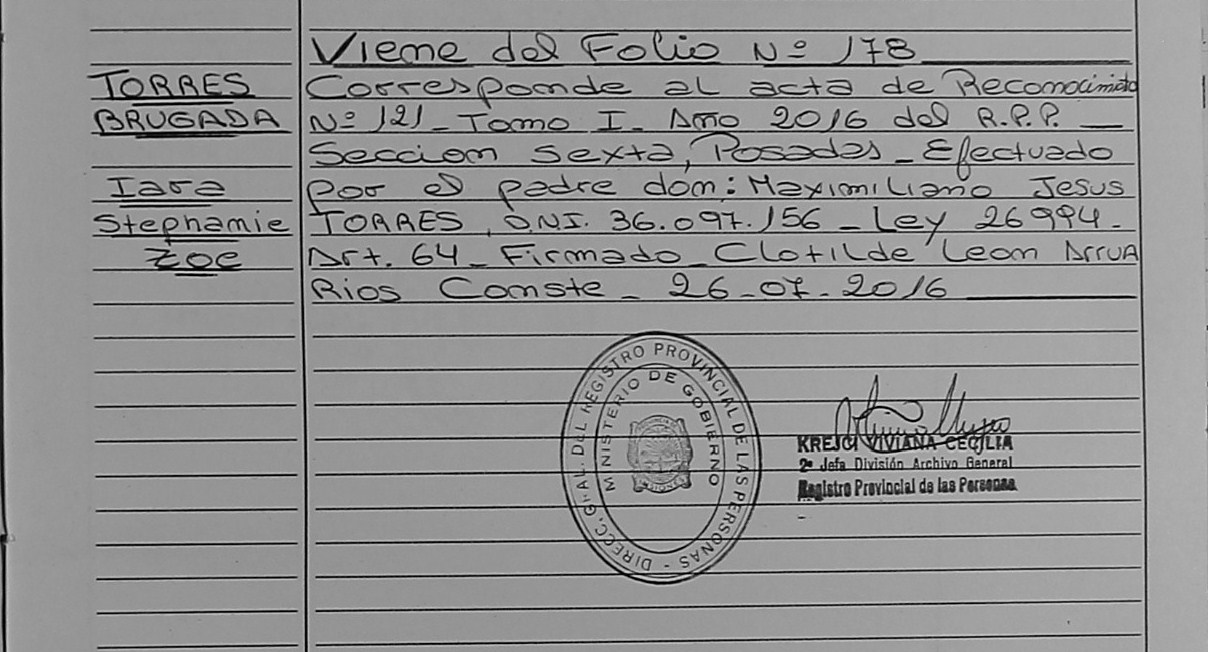 Viene del Folio Nº 178
TORRES
BRUGADA
Iara
Stephanie
Zoe
Corresponde al acta de Reconocimiento
Nº 121 - Tomo I - Año 2016 del R.P.P.
Seccion Sexta, Posadas - Efectuado
por el padre don: Maximiliano Jesus
TORRES, D.N.I. 36.097.156 - Ley 26994 -
Art. 64 - Firmado - Clotilde Leon Arrua
Rios Conste - 26-07-2016
DIRECC. GRAL. DEL REGISTRO PROVINCIAL DE LAS PERSONAS -
MINISTERIO DE GOBIERNO
KREJCI VIVIANA CECILIA
2ª Jefa División Archivo General
Registro Provincial de las Personas